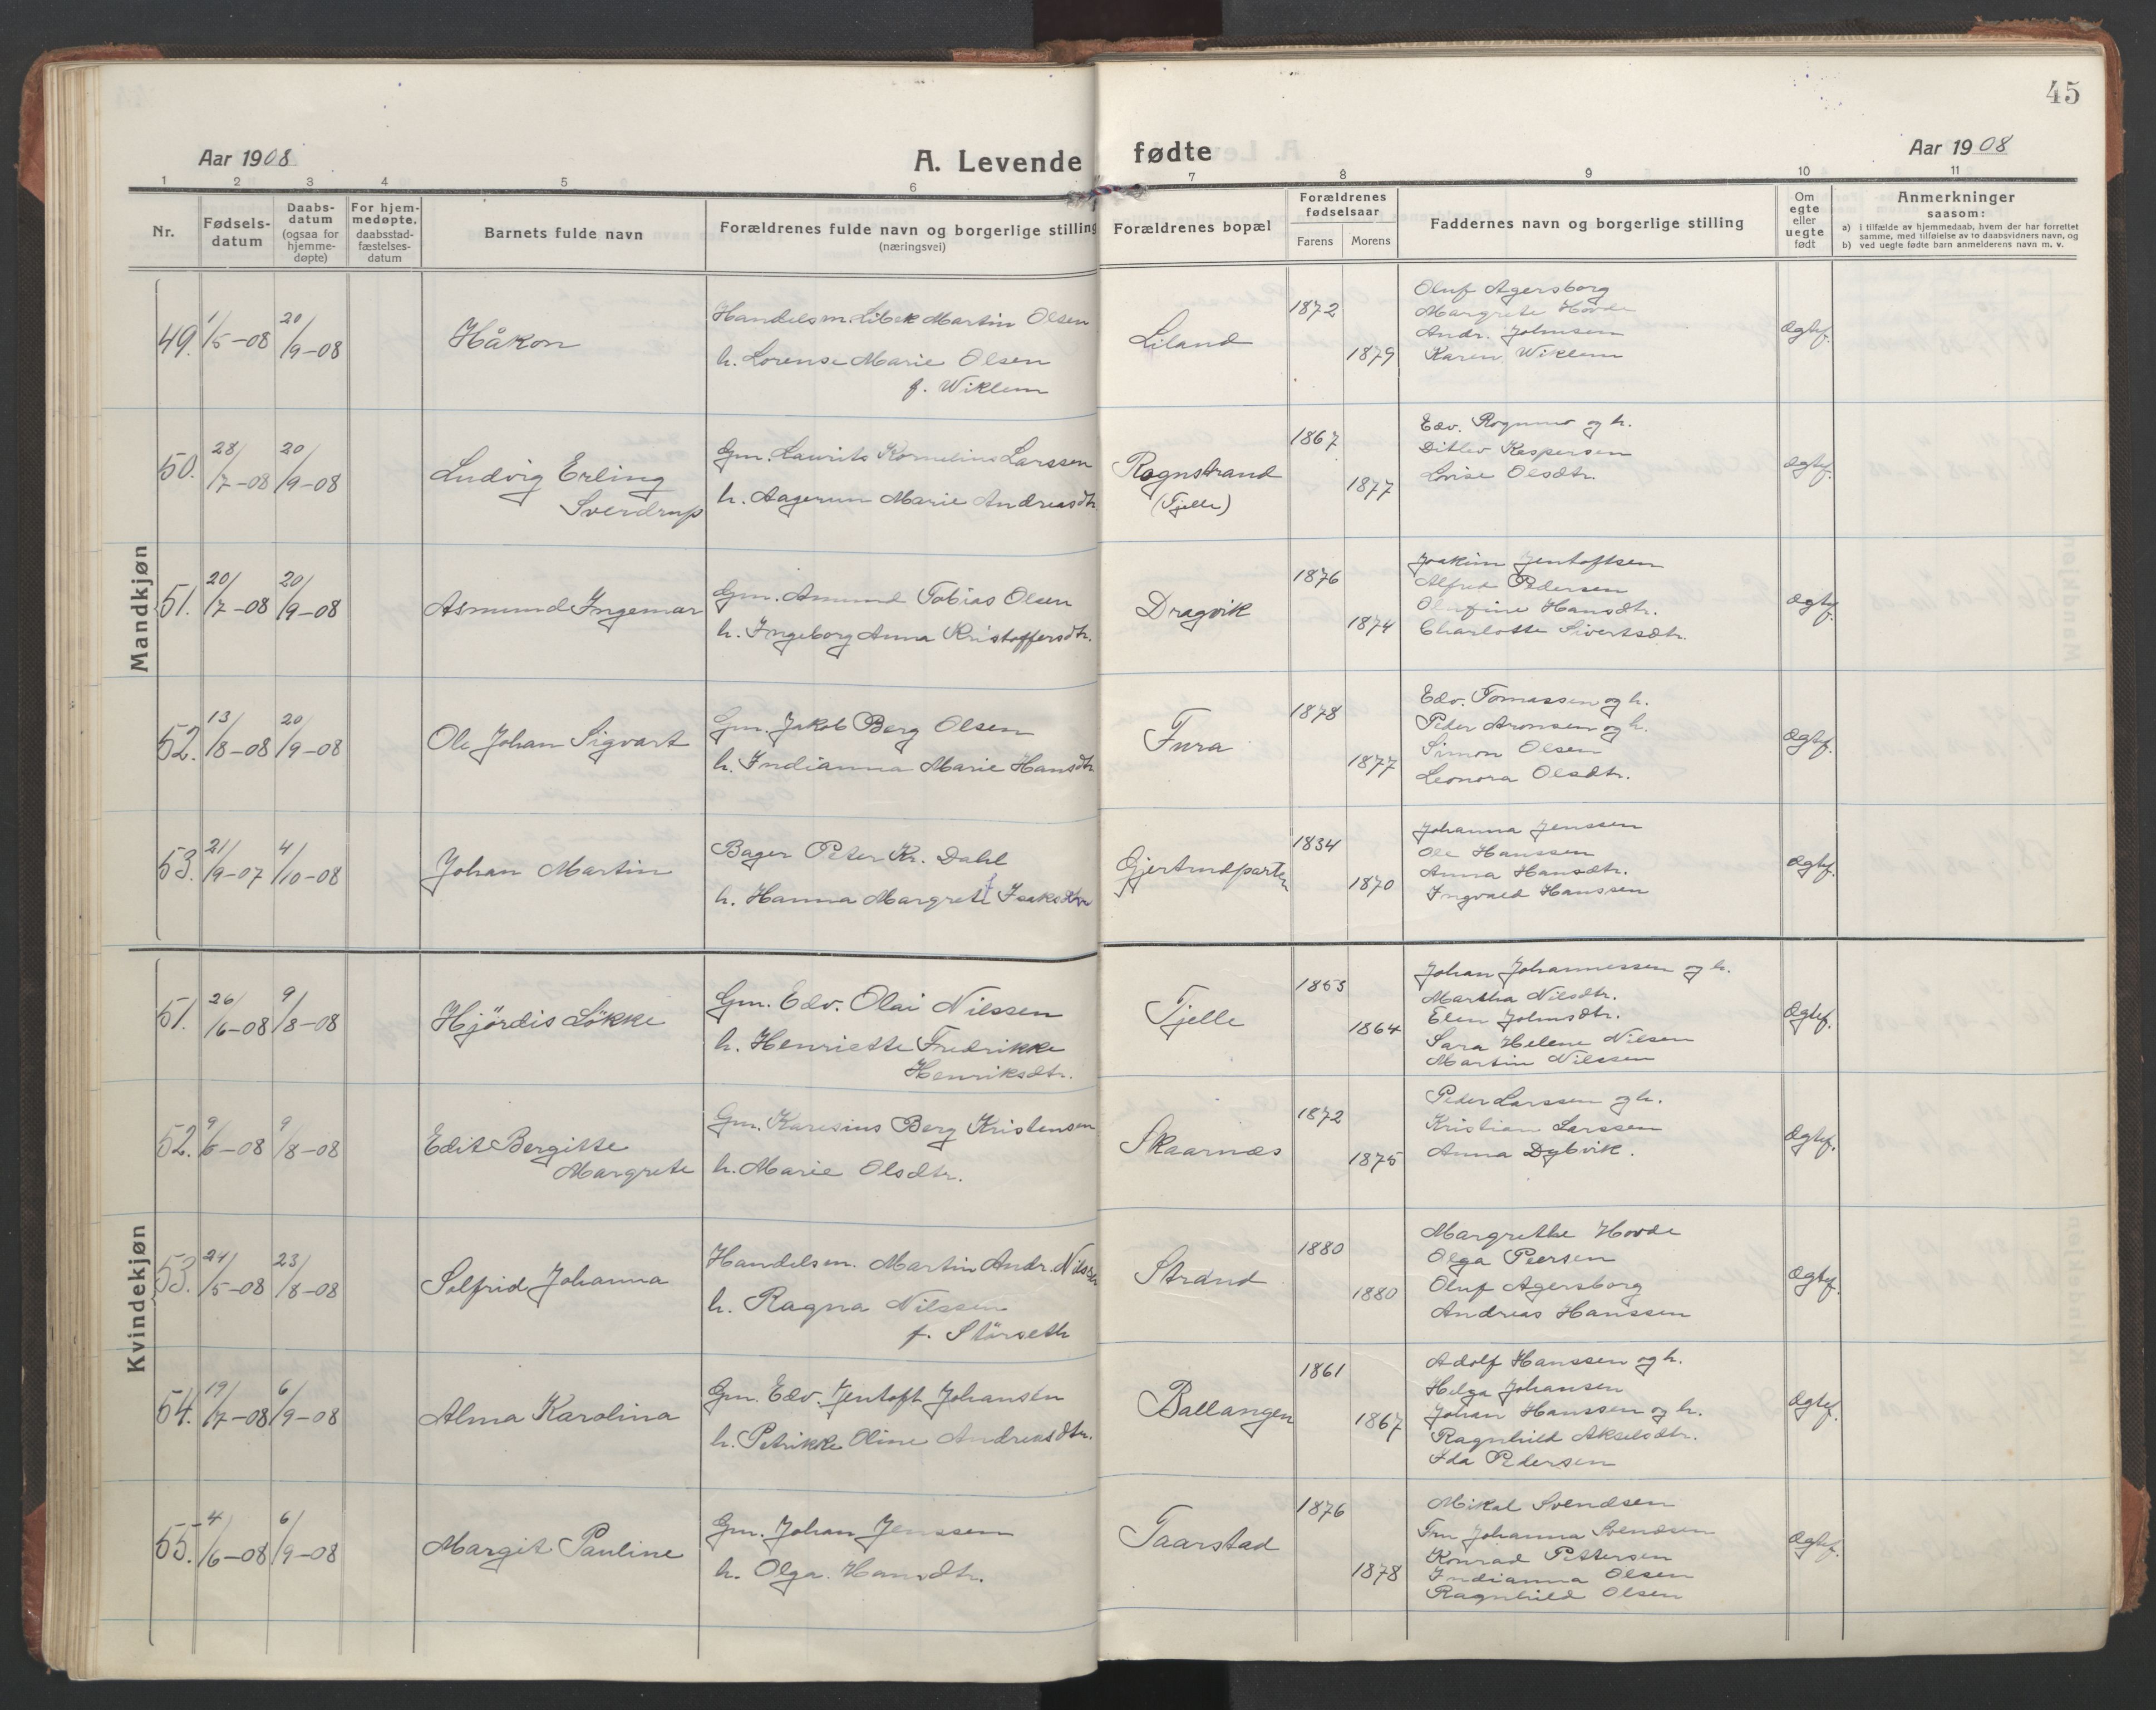 45
Aar 1908
A. Levende fødte
Aar 1908
1 2 3 4 5 6 7 8 9 10 11
Nr.
Fødsels-
datum
Daabs-
datum
(ogsaa for
hjemme-
døpte)
For hjem-
medøpte,
daabsstad-
fæstelses-
datum
Barnets fulde navn
Forældrenes fulde navn og borgerlige stilling
(næringsvei)
Forældrenes bopæl
Forældrenes
fødselsaar
Farens Morens
Faddernes navn og borgerlige stilling
Om
egte
eller
uegte
født
Anmerkninger
saasom:
a) i tilfælde av hjemmedaab, hvem der har forrettet
samme, med tilføielse av to daabsvidners navn, og
b) ved uegte fødte barn anmelderens navn m. v.
Mandkjøn
49. 1/5-08 20/9-08
Håkon
Handelsm. Libek Martin Olsen
h. Lorense Marie Olsen
f. Wiklem
Liland
1872
1879
Oluf Agersborg
Margrete Hovde
Andr. Johnsen
Karen Wiklem
Ægtef.
50. 28/7-08 20/9-08
Ludvig Erling
Sverdrup
Gm. Laurits Kornelius Larssen
h. Aagerun Marie Andreasdtr
Rognstrand
(Tjelle)
1867
1877
Edv. Rognmo og h.
Ditlev Kaspersen
Lovise Olsdtr.
Ægtef.
51. 20/7-08 20/9-08
Asmund Ingemar
Gm. Amund Tobias Olsen
h. Ingeborg Anna Kristoffersdtr.
Dragvik
1876
1874
Joakim Jentoftsen
Alfred Pedersen
Olufine Hansdtr.
Charlotte Sivertsdtr.
Ægtef.
52. 13/8-08 20/9-08
Ole Johan Sigvart
Gm. Jakob Berg Olsen
h. Indianna Marie Hansdtr.
Fura
1878
1877
Edv. Tomassen og h.
Peder Aronsen og h.
Simon Olsen
Leonora Olsdtr.
Ægtef.
53. 21/9-07 4/10-08
Johan Martin
Bager Peter Kr. Dahl
h. Hanna Margrete Isaksdtr
Gjertrudparten
1834
1870
Johanna Jenssen
Ole Hanssen
Anna Hansdtr.
Ingvald Hanssen
Ægtef.
Kvindekjøn
51. 26/6-08 9/8-08
Hjördis Lökke
Gm. Edv. Olai Nilssen
h. Henriette Fredrikke
Henriksdtr.
Tjelle
1863
1864
Johan Johannessen og h.
Martha Nilsdtr.
Elen Johnsdtr.
Sara Helene Nilsen
Martin Nilssen
Ægtef.
52. 9/6-08 9/8-08
Edit Bergitte
Margrete
Gm. Karesius Berg Kristensen
h. Marie Olsdtr.
Skaarnæs
1872
1875
Peder Larssen og h.
Kristian Larssen
Anna Dybvik.
Ægtef.
53. 24/5-08 23/8-08
Solfrid Johanna
Handelsm. Martin Andr. Nilssen
h. Ragna Nilssen
f. Störseth
Strand
1880
1880
Margrethe Hovde
Olga Peersen
Oluf Agersborg
Andreas Hanssen
Ægtef.
54. 19/7-08 6/9-08
Alma Karolina
Gm. Edv. Jentoft Johansen
h. Petrikke Oline Andreasdtr.
Ballangen
1861
1867
Adolf Hanssen og h.
Helga Johansen
Johan Hanssen og h.
Ragnhild Akselsdtr.
Ida Pedersen
Ægtef.
55. 4/6-08 6/9-08
Margit Pauline
Gm. Johan Jenssen
h. Olga Hansdtr.
Taarstad
1876
1878
Mikal Svendsen
Fru Johanna Svendsen
Konrad Pettersen
Indianna Olsen
Ragnhild Olsen
Ægtef.